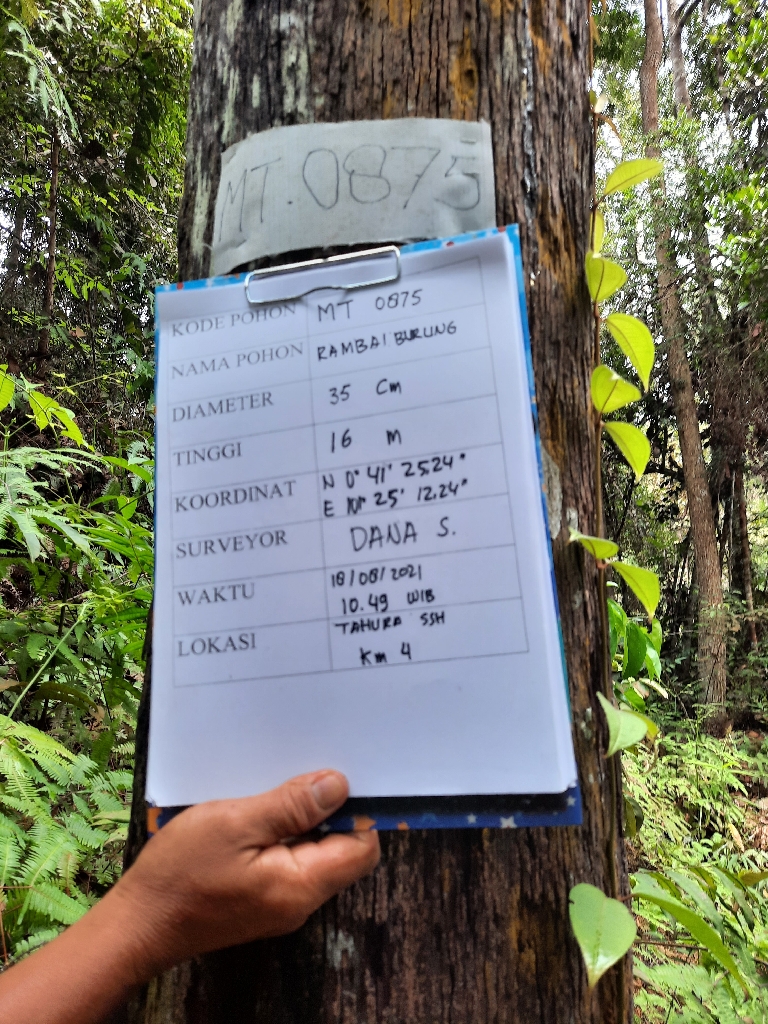 MT.0875
KODE POHON MT 0875
NAMA POHON RAMBAI BURUNG
DIAMETER 35 Cm
TINGGI 16 m
KOORDINAT N 0° 41' 25.24"
E 101° 25' 12.24"
SURVEYOR DANA S.
WAKTU 18/08/2021
10.49 WIB
LOKASI TAHURA SSH
Km 4